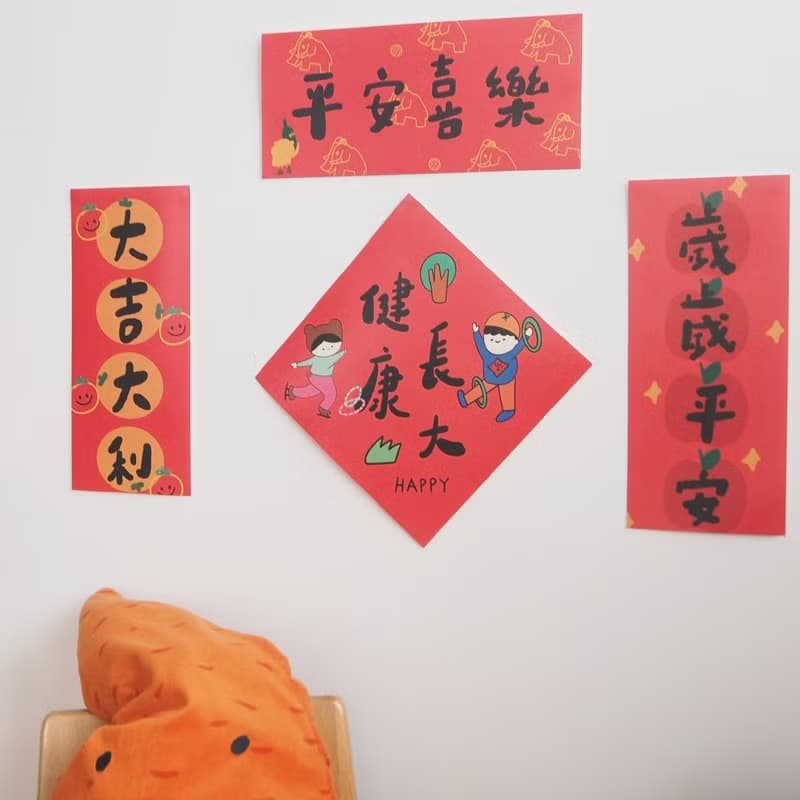 平安喜樂
大吉大利
健康
長大
HAPPY
歲歲平安